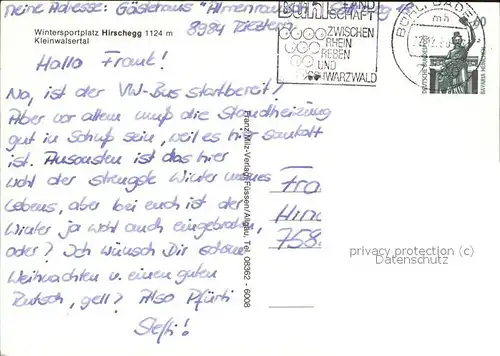 meine Adresse: Gästehaus "Almenrausch"
8984 Riezlern
Wintersportplatz Hirschegg 1124 m
Kleinwalsertal
Hallo Frank!
Na, ist der VW-Bus startbereit?
Aber vor allem muß die Standheizung
gut in Schuß sein, weil es hier saukalt
ist. Ansonsten ist das hier
wohl der strengste Winter meines
Lebens, aber bei euch ist der
Winter ja wohl auch eingebrochen,
oder? Ich wünsch Dir schöne
Weihnachten u. einen guten
Rutsch, gell? Also Pfürti
Steffi!
Franz Milz-Verlag Füssen/Allgäu, Tel. 08362 - 6008
LAND
SCHAFT
ZWISCHEN
RHEIN
REBEN
UND
SCHWARZWALD
BÜHL, BADEN
mh
60
DEUTSCHE BUNDESPOST
BAVARIA MÜNCHEN
Fra
Hin
758
privacy protection (c)
Datenschutz